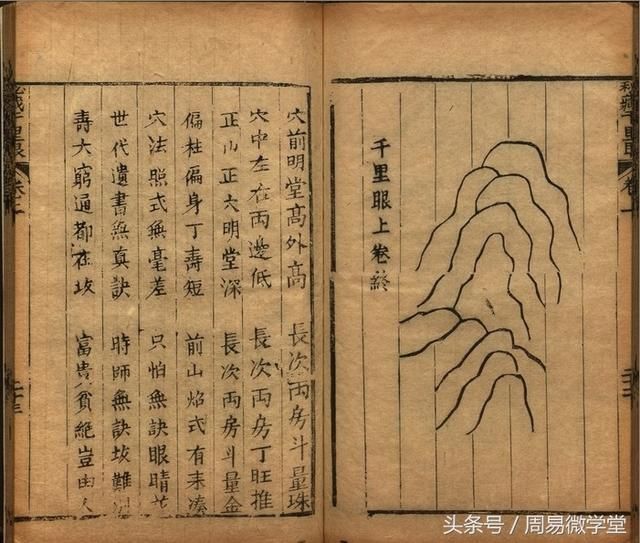 千里眼上卷終
穴前明堂高外高 長次両房斗量珠
穴中左右両邊低 長次両房丁旺推
正山正穴明堂深 長次両房斗量金
偏柱偏身丁壽短 前山焰式有來湊
穴法照式無毫差 只怕無訣眼睛花
世代遺書無真訣 時師無訣坟難
壽夭窮通都在坟 富貴貧絶豈由人
头条号／周易微学堂